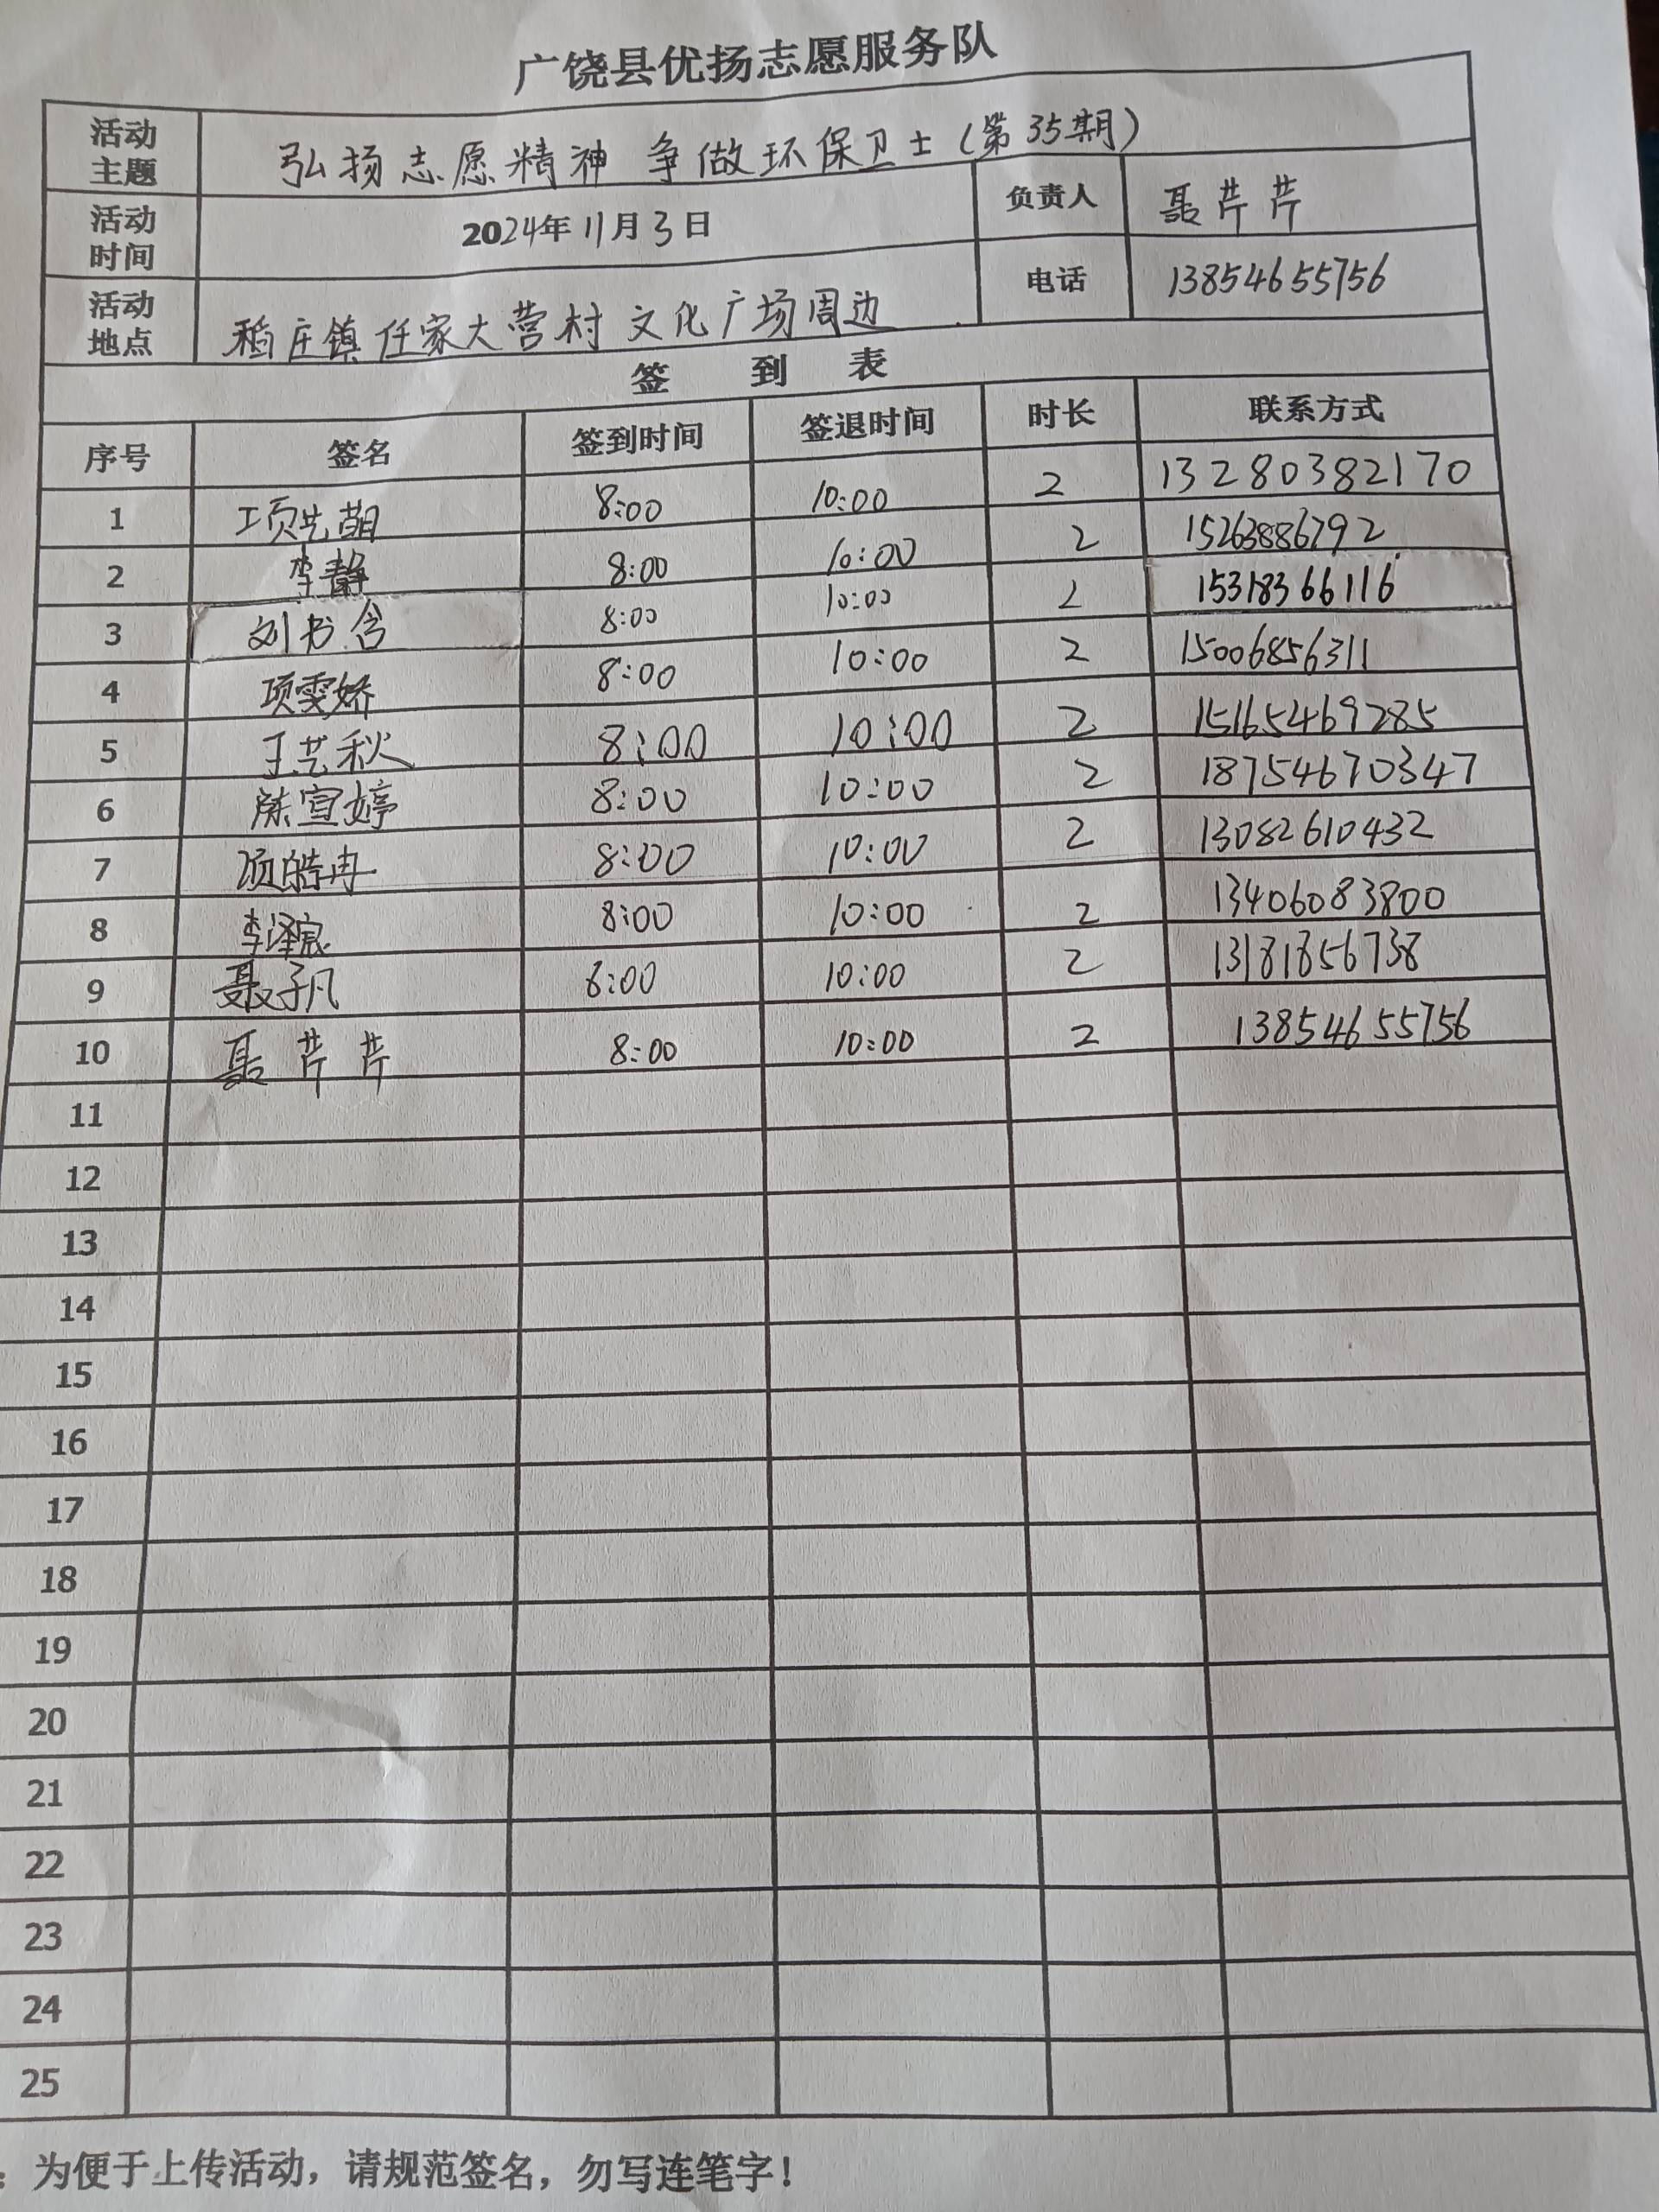 广饶县优扬志愿服务队
活动主题 弘扬志愿精神 争做环保卫士(第35期)
活动时间 2024年11月3日 负责人 聂芹芹
活动地点 稻庄镇任家大营村文化广场周边 电话 13854655756
签到表
序号 签名 签到时间 签退时间 时长 联系方式
1 项先萌 8:00 10:00 2 13280382170
2 李静 8:00 10:00 2 15263886792
3 刘书含 8:00 10:00 2 15318366116
4 项雯娇 8:00 10:00 2 15006856311
5 王艺秋 8:00 10:00 2 15165469285
6 陈宣婷 8:00 10:00 2 18754670347
7 项皓冉 8:00 10:00 2 13082610432
8 李泽宸 8:00 10:00 2 13406083800
9 聂子凡 8:00 10:00 2 13181856738
10 聂芹芹 8:00 10:00 2 13854655756
11
12
13
14
15
16
17
18
19
20
21
22
23
24
25
:为便于上传活动,请规范签名,勿写连笔字!